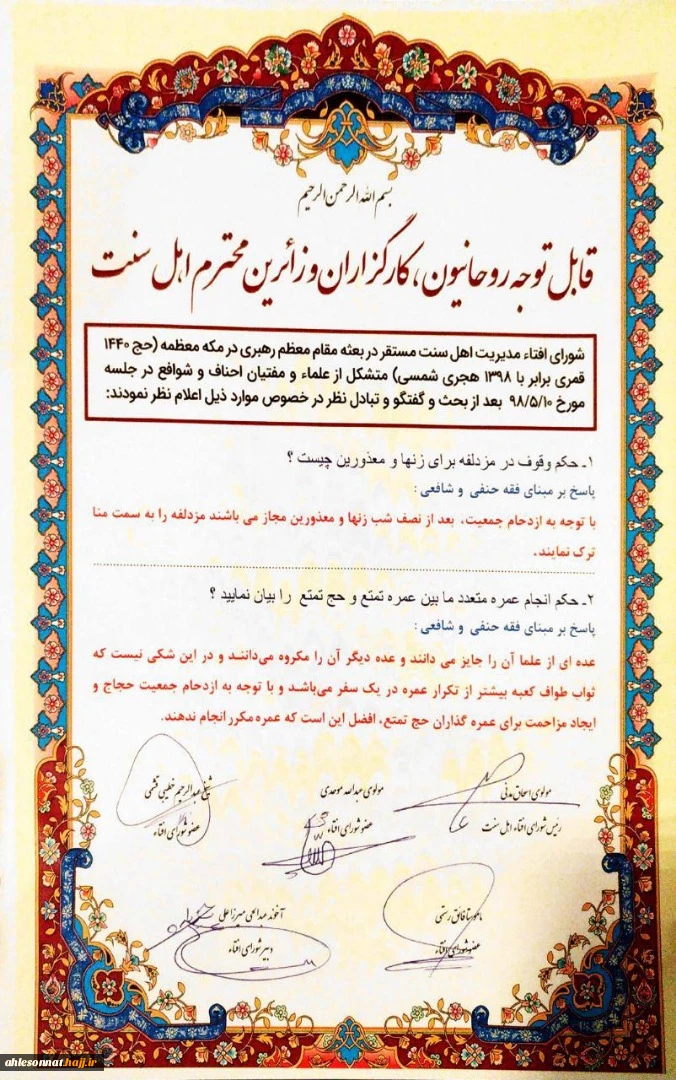 بسم الله الرحمن الرحیم
قابل توجه روحانیون، کارگزاران و زائرین محترم اهل سنت
شورای افتاء مدیریت اهل سنت مستقر در بعثه مقام معظم رهبری در مکه معظمه (حج ۱۴۴۰
قمری برابر با ۱۳۹۸ هجری شمسی) متشکل از علماء و مفتیان احناف و شوافع در جلسه
مورخ ۹۸/۵/۱۰ بعد از بحث و گفتگو و تبادل نظر در خصوص موارد ذیل اعلام نظر نمودند:
۱ـ حکم وقوف در مزدلفه برای زنها و معذورین چیست ؟
پاسخ بر مبنای فقه حنفی و شافعی :
با توجه به ازدحام جمعیت، بعد از نصف شب زنها و معذورین مجاز می باشند مزدلفه را به سمت منا
ترک نمایند.
۲ـ حکم انجام عمره متعدد ما بین عمره تمتع و حج تمتع را بیان نمایید ؟
پاسخ بر مبنای فقه حنفی و شافعی :
عده ای از علما آن را جایز می دانند و عده دیگر آن را مکروه می‌دانند و در این شکی نیست که
ثواب طواف کعبه بیشتر از تکرار عمره در یک سفر می‌باشد و با توجه به ازدحام جمعیت حجاج و
ایجاد مزاحمت برای عمره گذاران حج تمتع، افضل این است که عمره مکرر انجام ندهند.
مولوی اسحاق مدنی
رئیس شورای افتاء اهل سنت
مولوی عبدالله موحدی
عضو شورای افتاء
شیخ عبدالرحیم خطیبی قشمی
عضو شورای افتاء
ماموستا فائق رستمی
عضو شورای افتاء
آخوند عبدالحی میرزاعلی
دبیر شورای افتاء
ahlesonnat.hajj.ir